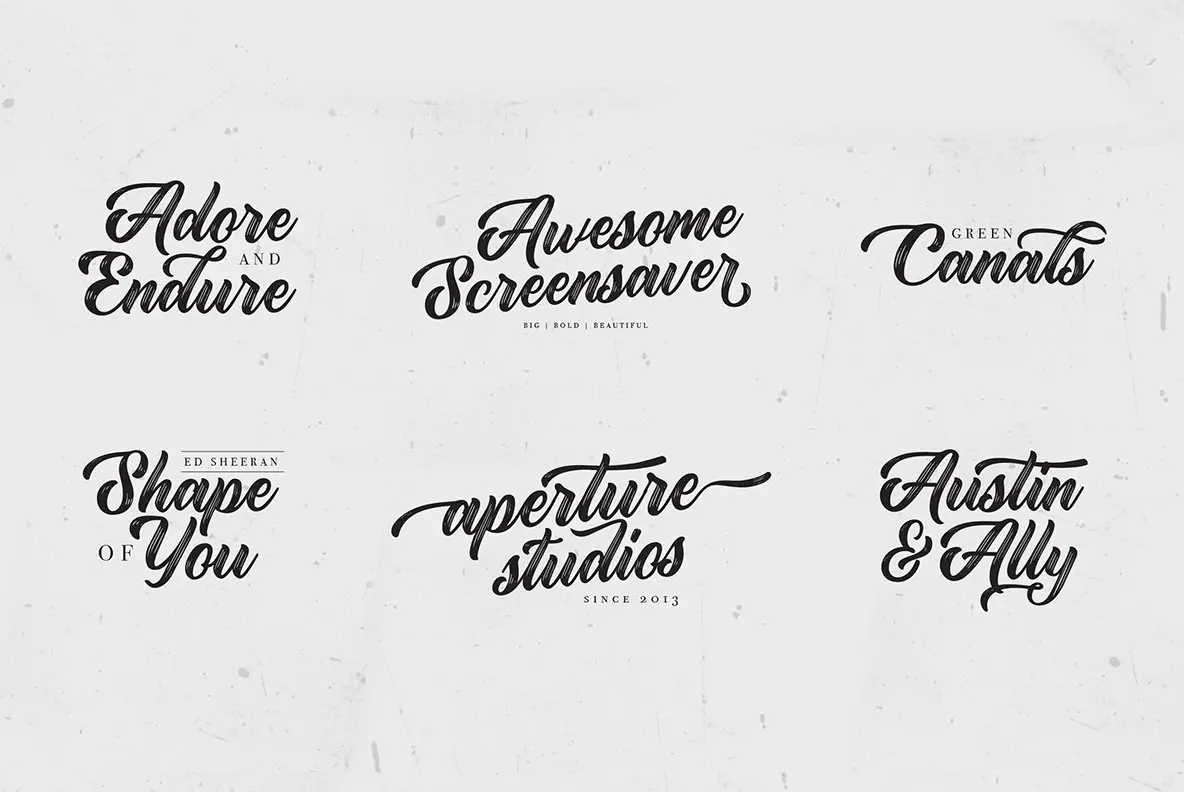 Adore
AND
Endure
Awesome
Screensaver
BIG | BOLD | BEAUTIFUL
GREEN
Canals
ED SHEERAN
Shape
OF You
aperture
studios
SINCE 2013
Austin
& Ally